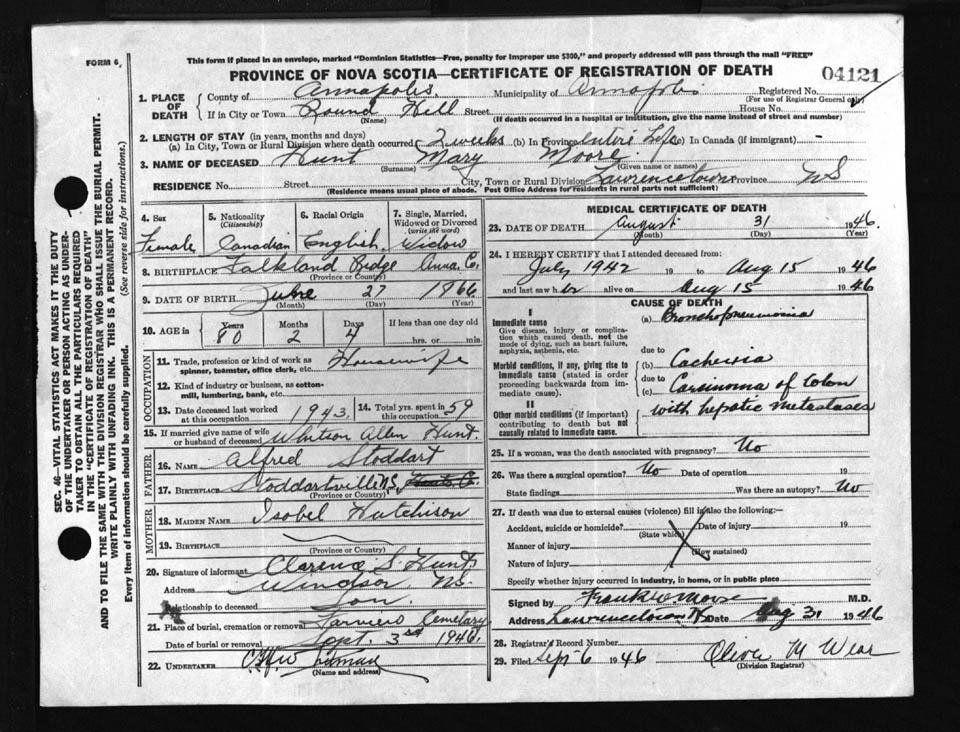 FORM 6
This form if placed in an envelope, marked "Dominion Statistics—Free, penalty for improper use $300," and properly addressed will pass through the mail "FREE"
PROVINCE OF NOVA SCOTIA—CERTIFICATE OF REGISTRATION OF DEATH
04121
1. PLACE OF DEATH
County of Annapolis Municipality of Annapolis Registered No.
(For use of Registrar General only)
If in City or Town Round Hill Street House No.
(Name) (If death occurred in a hospital or institution, give the name instead of street and number)
2. LENGTH OF STAY (in years, months and days)
(a) In City, Town or Rural Division where death occurred 2 weeks (b) In Province Entire Life (c) In Canada (if immigrant)
3. NAME OF DECEASED Hunt Mary Moore
(Surname) (Given name or names)
RESIDENCE No. Street City, Town or Rural Division Lawrencetown Province NS
(Residence means usual place of abode. Post Office Address for residents in rural parts not sufficient)
SEC. 46—VITAL STATISTICS ACT MAKES IT THE DUTY
OF THE UNDERTAKER OR PERSON ACTING AS UNDER-
TAKER TO OBTAIN ALL THE PARTICULARS REQUIRED
IN THE "CERTIFICATE OF REGISTRATION OF DEATH"
AND TO FILE THE SAME WITH THE DIVISION REGISTRAR WHO SHALL ISSUE THE BURIAL PERMIT.
WRITE PLAINLY WITH UNFADING INK. THIS IS A PERMANENT RECORD.
Every item of information should be carefully supplied. (See reverse side for instructions.)
4. Sex
Female
5. Nationality
(Citizenship)
Canadian
6. Racial Origin
English
7. Single, Married,
Widowed or Divorced
(write the word)
Widow
8. BIRTHPLACE Falkland Ridge Anna. Co.
(Province or Country)
9. DATE OF BIRTH June 27 1866
(Month) (Day) (Year)
10. AGE in
Years Months Days If less than one day old
80 2 4 hrs. or min.
OCCUPATION
11. Trade, profession or kind of work as
spinner, teamster, office clerk, etc. Housewife
12. Kind of industry or business, as cotton-
mill, lumbering, bank, etc.
13. Date deceased last worked
at this occupation 1943
14. Total yrs. spent in
this occupation 59
15. If married give name of wife
or husband of deceased Whitson Allen Hunt.
FATHER
16. NAME Alfred Stoddart
17. BIRTHPLACE Stoddartville N.S.
(Province or Country)
MOTHER
18. MAIDEN NAME Isobel Hutchison
19. BIRTHPLACE
(Province or Country)
20. Signature of informant Clarence S. Hunt
Address Windsor N.S.
Relationship to deceased Son.
21. Place of burial, cremation or removal Cemetary
Date of burial or removal Sept. 3rd 1946.
22. UNDERTAKER
(Name and address)
MEDICAL CERTIFICATE OF DEATH
23. DATE OF DEATH August 31 1946.
(Month) (Day) (Year)
24. I HEREBY CERTIFY that I attended deceased from:
July 1942 19 to Aug 15 1946
and last saw her alive on Aug 15 1946
CAUSE OF DEATH
I
Immediate cause
Give disease, injury or complica-
tion which caused death, not the
mode of dying, such as heart failure,
asphyxia, asthenia, etc.
(a) Bronchopneumonia
due to
Morbid conditions, if any, giving rise to
immediate cause (stated in order
proceeding backwards from im-
mediate cause).
(b) Cachexia
due to
(c) Carcinoma of Colon
with hepatic metastases
II
Other morbid conditions (if important)
contributing to death but not
causally related to immediate cause.
25. If a woman, was the death associated with pregnancy? No
26. Was there a surgical operation? No Date of operation 19
State findings Was there an autopsy? No
27. If death was due to external causes (violence) fill in also the following:—
Accident, suicide or homicide? Date of injury 19
(State which)
Manner of injury
(How sustained)
Nature of injury
Specify whether injury occurred in industry, in home, or in public place
Signed by Frank W Morse M.D.
Address Lawrencetown NS Aug 31 1946
28. Registrar's Record Number
29. Filed Sep 6 1946 Oliver M Wear
(Division Registrar)